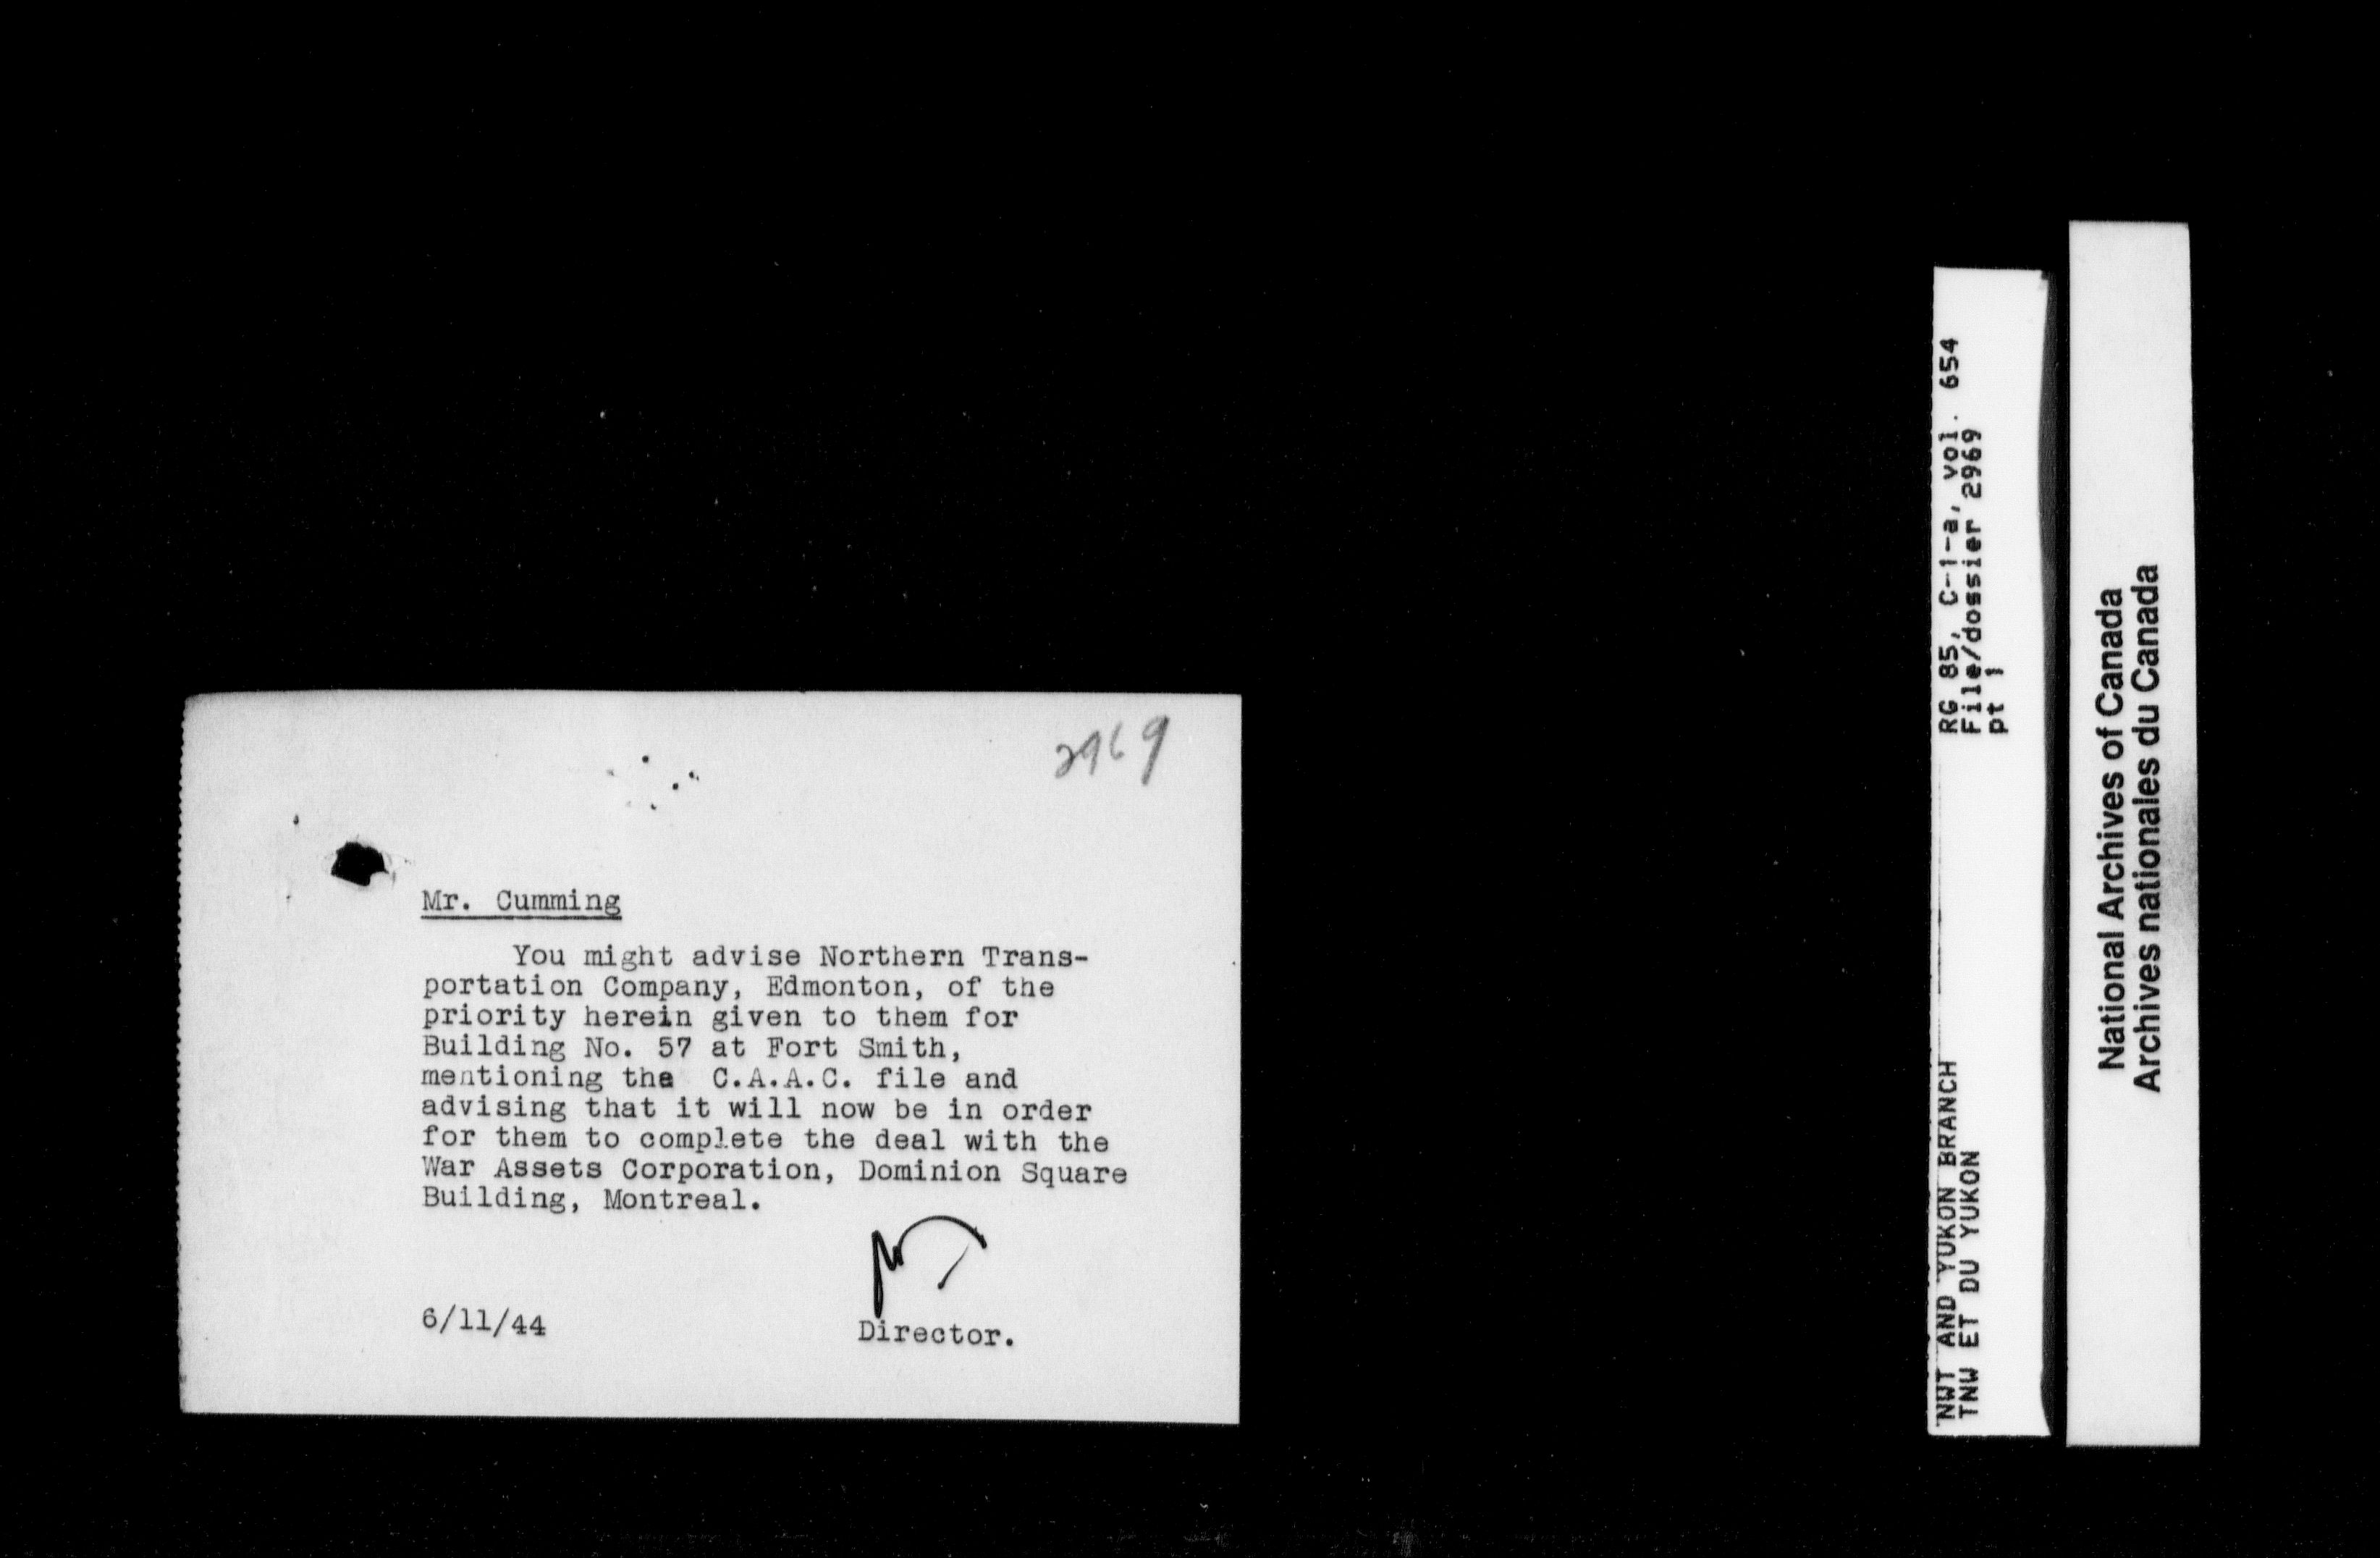 2969
Mr. Cumming
You might advise Northern Trans-
portation Company, Edmonton, of the
priority herein given to them for
Building No. 57 at Fort Smith,
mentioning the C.A.A.C. file and
advising that it will now be in order
for them to complete the deal with the
War Assets Corporation, Dominion Square
Building, Montreal.
6/11/44
Director.
RG 85, C-1-a, vol. 654
File/dossier 2969
pt 1
NWT AND YUKON BRANCH
TNW ET DU YUKON
National Archives of Canada
Archives nationales du Canada